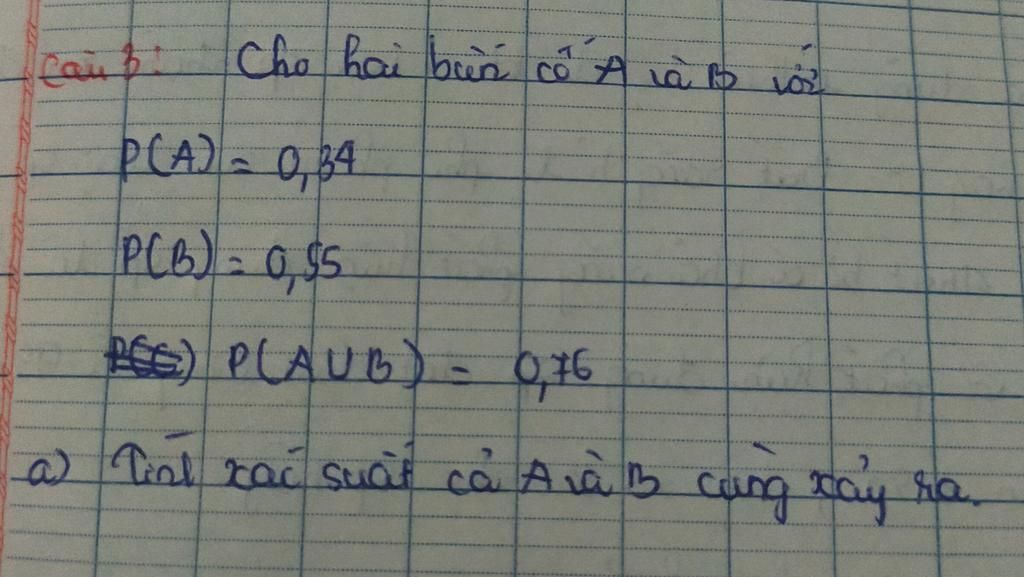 Câu 3: Cho hai biến cố A và B với
P(A) = 0,34
P(B) = 0,55
P(A∪B) = 0,76
a) Tính xác suất cả A và B cùng xảy ra.